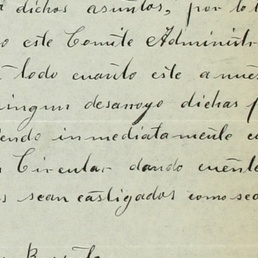 dichos asuntos, por lo t
este Comite Administr
todo cuanto este a nues
ningun desarroyo dichas p
endo inmediatamente c
Circular dando cuent
sean castigados como se